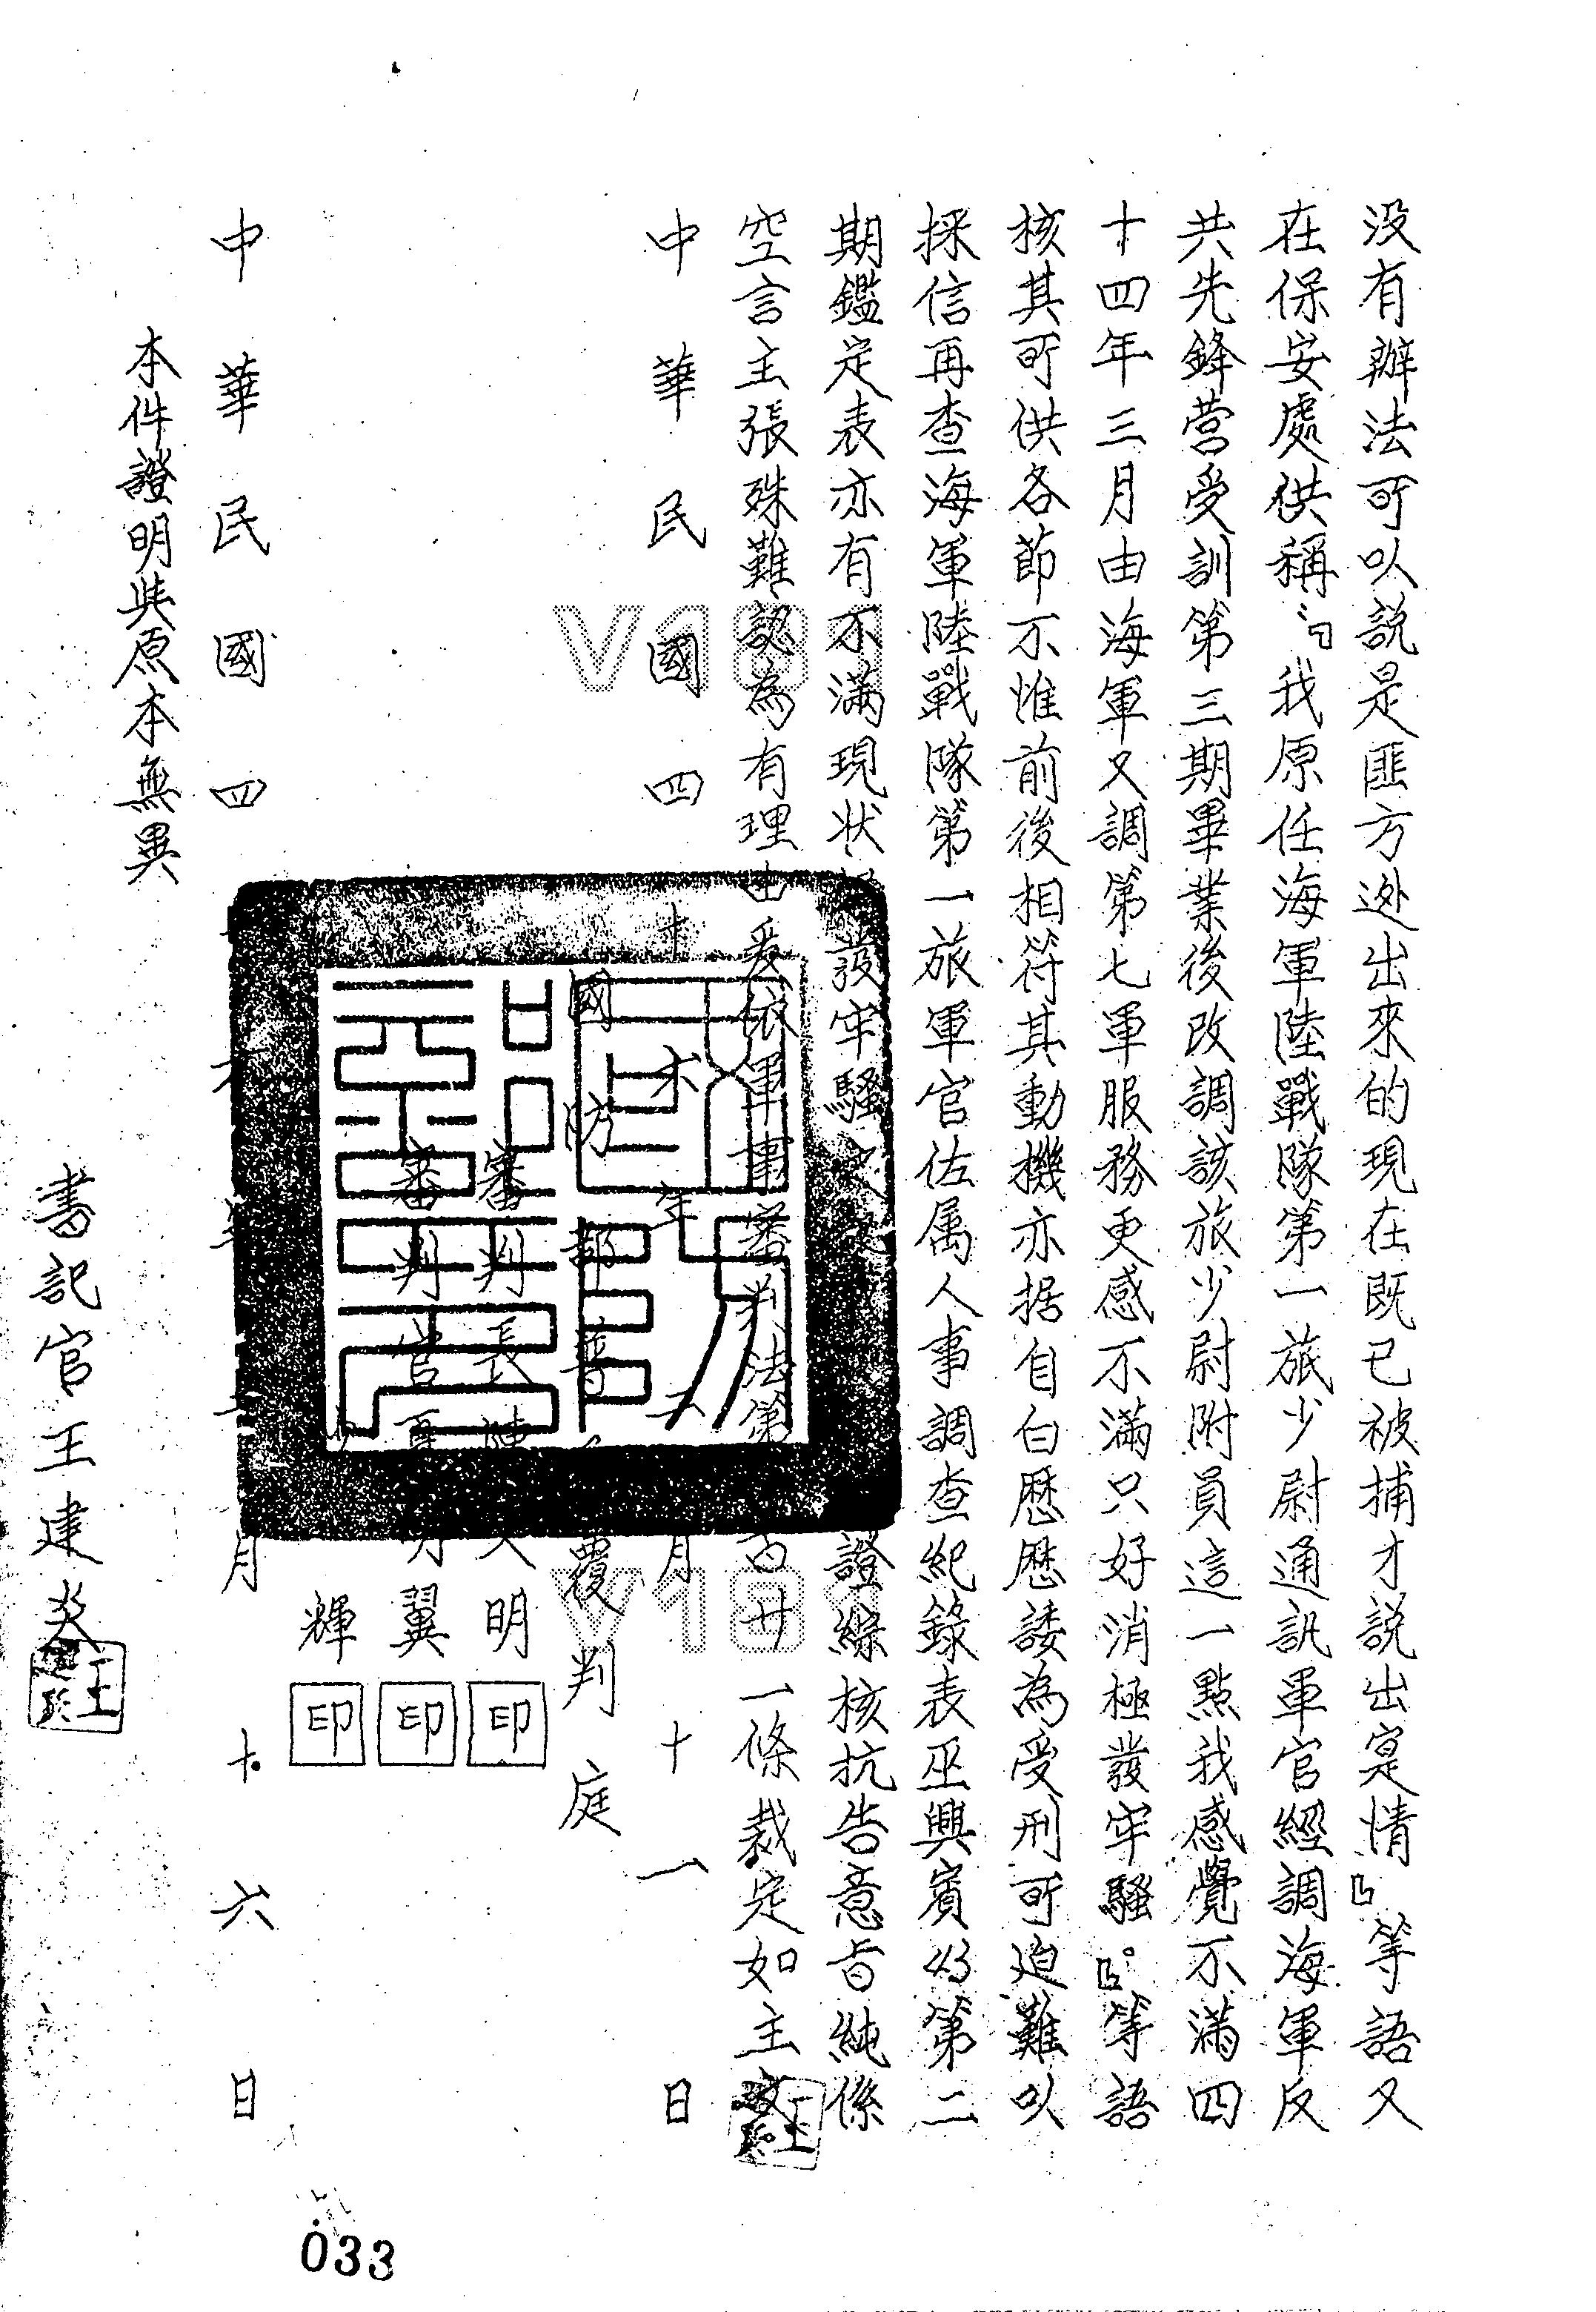 没有辦法可以説是匪方逃出來的現在既已被捕才説出寔情』等語又
在保安處供稱：『我原任海軍陸戰隊第一旅少尉通訊軍官經調海軍反
共先鋒营受訓第三期畢業後改調該旅少尉附員這一點我感覺不滿四
十四年三月由海軍又調第七軍服務更感不滿只好消極發牢騷。』等語
核其所供各節不惟前後相符其動機亦据自白歷歷諉為受刑所迫難以
採信再查海軍陸戰隊第一旅軍官佐属人事調查紀錄表巫興賓 第二
期鑑定表亦有不滿現状 發牢騷之 證綜核抗告意旨純係
空言主張殊難認為有理由爰依軍事審判法第 百廿一條裁定如主文
中華民國四十 年 月十一日
國防部普 覆判庭
審判長陳 明 印
審判官 翼 印
輝 印
中華民國四 年 月十六日
本件證明與原本無異
書記官王建
V181
V18
033